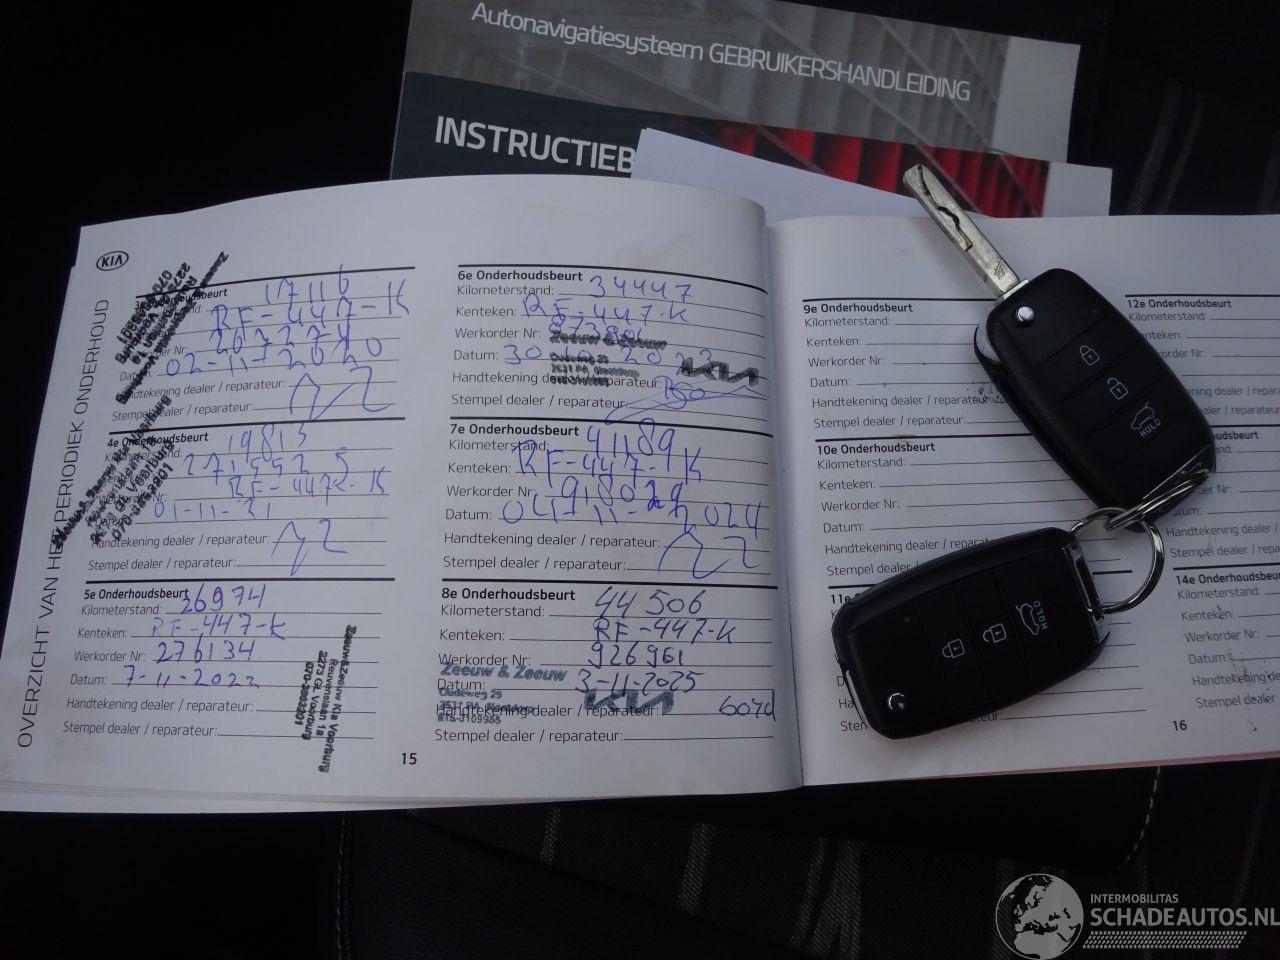 Autonavigatiesysteem GEBRUIKERSHANDLEIDING
INSTRUCTIEB
KIA
OVERZICHT VAN HET PERIODIEK ONDERHOUD
17116
RF-447-K
02-11-2020
Handtekening dealer / reparateur:
Stempel dealer / reparateur:
4e Onderhoudsbeurt
19813
RF-447-K
01-11-21
Handtekening dealer / reparateur:
Stempel dealer / reparateur:
5e Onderhoudsbeurt
Kilometerstand: 26974
Kenteken: RF-447-K
Werkorder Nr: 276134
Datum: 7-11-2022
Handtekening dealer / reparateur:
Stempel dealer / reparateur:
Zeeuw&Zeeuw Kia Voorburg
Reuvenslaan 1a
2273 GL Voorburg
15
6e Onderhoudsbeurt
Kilometerstand: 34447
Kenteken: RF-447-K
Werkorder Nr:
Zeeuw & Zeeuw
Datum: 30
Oudeweg 29
KIA
Handtekening dealer / reparateur:
Stempel dealer / reparateur:
7e Onderhoudsbeurt
Kilometerstand: 41189
Kenteken: RF-447-K
Werkorder Nr: 918029
Datum: 04-11-2024
Handtekening dealer / reparateur:
Stempel dealer / reparateur:
8e Onderhoudsbeurt
Kilometerstand: 44506
Kenteken: RF-447-K
Werkorder Nr: 926961
Zeeuw & Zeeuw
Datum: 3-11-2025
Oudeweg 29
KIA
Handtekening dealer / reparateur:
Stempel dealer / reparateur:
9e Onderhoudsbeurt
Kilometerstand:
Kenteken:
Werkorder Nr:
Datum:
Handtekening dealer / reparateur:
Stempel dealer / reparateur:
10e Onderhoudsbeurt
Kilometerstand:
Kenteken:
Werkorder Nr:
Datum:
Handtekening dealer / reparat
Stempel dealer / re
11e
12e Onderhoudsbeurt
Kilometerstand:
Kenteken:
Werkorder Nr:
Datum:
dealer / reparateur:
ler / reparateur:
sbeurt
Handtekening dealer / reparateur:
Stempel dealer / reparateur:
14e Onderhoudsbeurt
Kilometerstand:
Kenteken:
Werkorder Nr:
Datum:
Handtekening dealer / reparateur:
Stempel dealer / reparateur:
16
HOLD
HOLD
INTERMOBILITAS
SCHADEAUTOS.NL